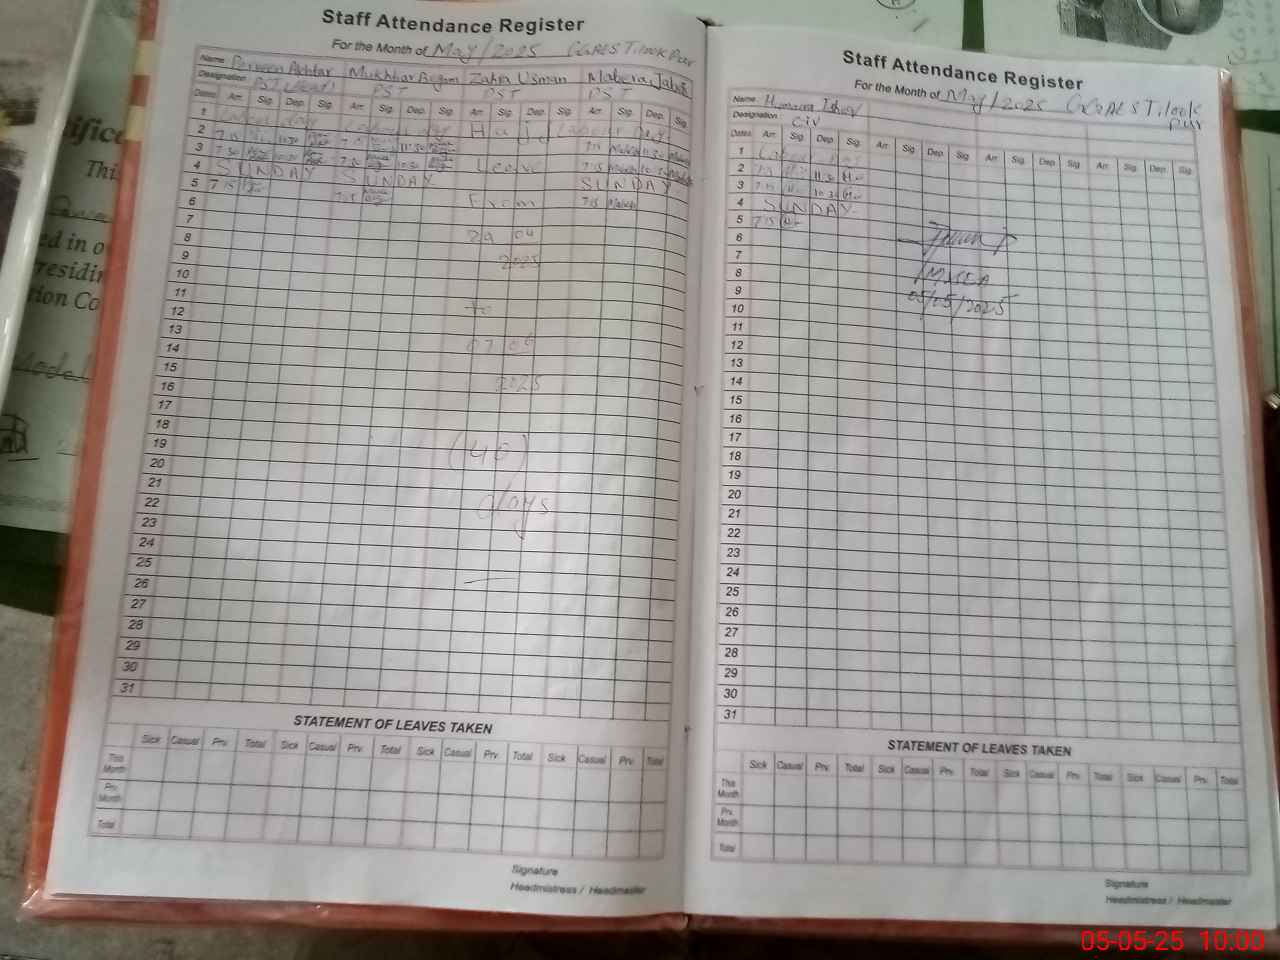 Staff Attendance Register
For the Month of May/2025 GGPES Tilook Pur
Name Parveen Akhtar Mukhtar Begum Zahra Usman
Designation PST PST PST
Dates Arr. Sig. Dep. Sig. Arr. Sig. Dep. Sig. Arr. Sig. Dep. Sig. Arr. Sig. Dep. Sig.
1 Labour day Labour day Hajj Labour Day
2 7 15 11 30 7 15 11 30 7 15 11 30
3 7 30 10 30 7 30 10 30 Leave 7 15 10 30
4 SUNDAY SUNDAY SUNDAY
5 7 15 7 15 From 7 15
6
7
8 29 04
9 2025
10
11
12 to
13
14 07 06
15
16 2025
17
18
19 (40)
20
21
22 days
23
24
25
26
27
28
29
30
31
STATEMENT OF LEAVES TAKEN
Sick Casual Prv. Total Sick Casual Prv. Total Sick Casual Prv. Total Sick Casual Prv. Total
This Month
Prv. Month
Total
Signature
Headmistress / Headmaster
Staff Attendance Register
For the Month of May/2025 Tilook Pur
Name Humaira
Designation CIV
Dates Arr. Sig. Dep. Sig. Arr. Sig. Dep. Sig. Arr. Sig. Dep. Sig. Arr. Sig. Dep. Sig.
1 Labour Day
2 7 15 11 30
3 7 15 10 30
4 SUNDAY
5 7 15
6
7
8 MEA
9 05/05/2025
10
11
12
13
14
15
16
17
18
19
20
21
22
23
24
25
26
27
28
29
30
31
STATEMENT OF LEAVES TAKEN
Sick Casual Prv. Total Sick Casual Prv. Total Sick Casual Prv. Total Sick Casual Prv. Total
This Month
Prv. Month
Total
Signature
Headmistress / Headmaster
05-05-25 10:00